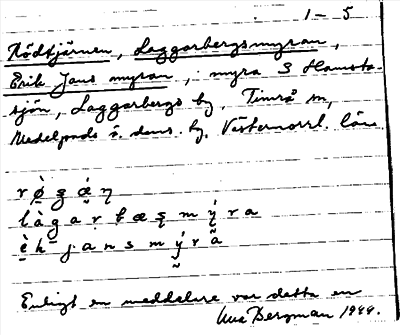 1 - 5
Rödtjärnen, Laggarbergsmyran,
Erik Jans myran, myra S Hamsta-
sjön, Laggarbergs by, Timrå sn,
Medelpads ö. doms. hg, Västernorrl. län.
r ø̀ ʂ ǽ ṇ
l à g a r b æ ʂ m ý r a
è k j a n s m ý r a
Enligt en meddelare var detta en
Bergman 1944.